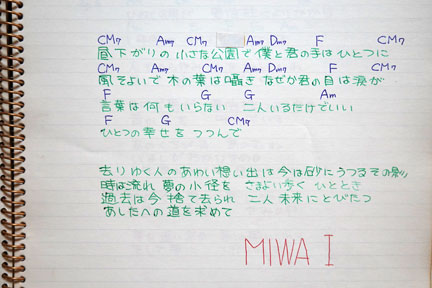 CM7 Am7 CM7 Am7 Dm7 F CM7
昼下がりの小さな公園で僕と君の手はひとつに
CM7 Am7 CM7 Am7 Dm7 F CM7
風そよいで木の葉は囁きなぜか君の目は涙が
F G G Am
言葉は何もいらない 二人いるだけでいい
F G CM7
ひとつの幸せをつつんで
去りゆく人のあわい想い出は今は砂にうつるその影
時は流れ夢の小径をさまよい歩くひととき
過去は今捨て去られ 二人未来にとびたつ
あしたへの道を求めて
MIWA I